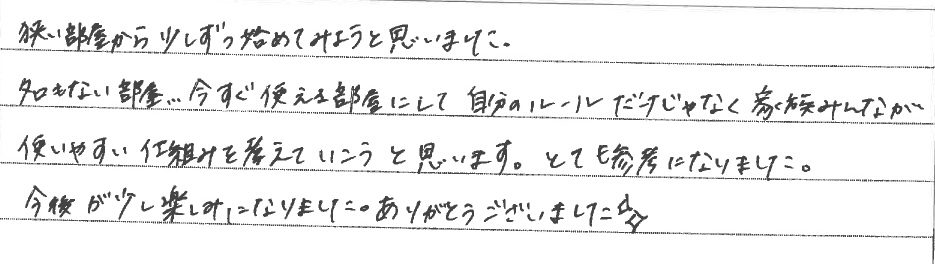 狭い部屋から少しずつ始めてみようと思いました。
名もない部屋…今すぐ使える部屋にして自分のルールだけじゃなく家族みんなが
使いやすい仕組みを考えていこうと思います。とても参考になりました。
今後が少し楽しみになりました。ありがとうございました☆